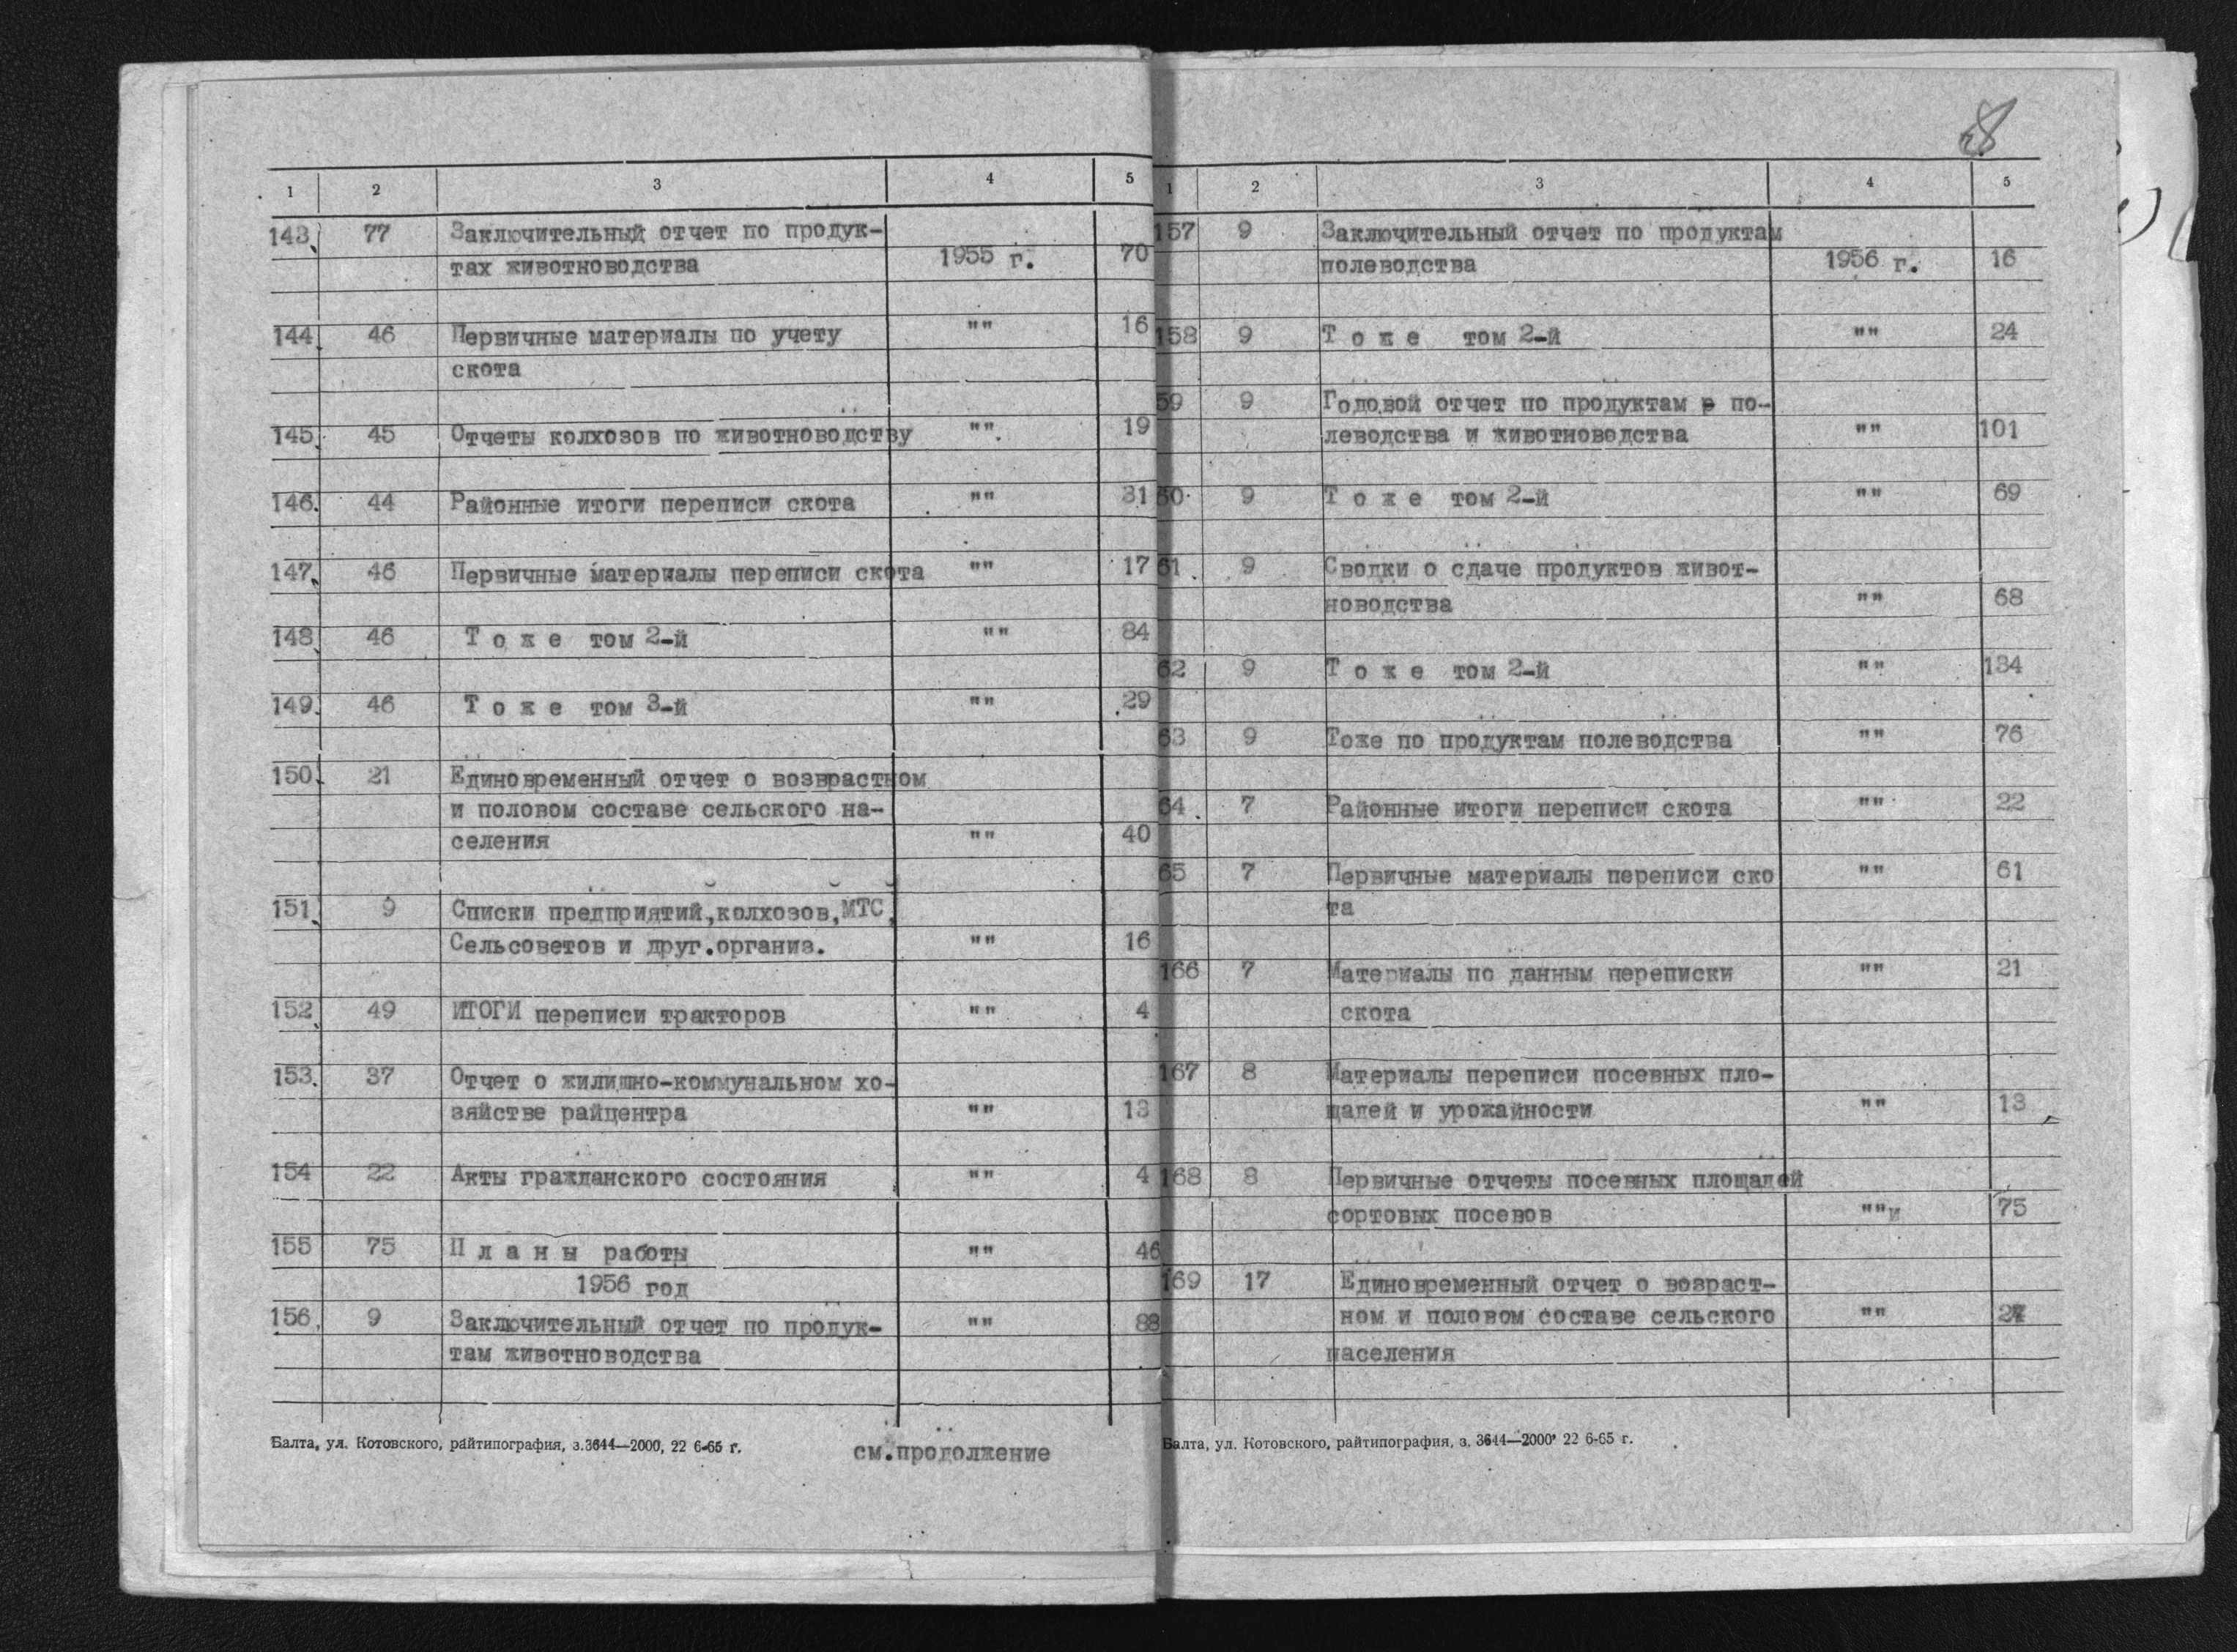 1 2 3 4 5
143. 77 Заключительный отчет по продук-
тах животноводства 1955 г. 70
144. 46 Первичные материалы по учету "" 16
скота
145. 45 Отчеты колхозов по животноводству "". 19
146. 44 Районные итоги переписи скота "" 31
147. 46 Первичные материалы переписи скота "" 17
148. 46 Т о ж е том 2-й "" 84
149. 46 Т о ж е том 3-й "" 29
150. 21 Единовременный отчет о возврастном
и половом составе сельского на-
селения "" 40
151. 9 Списки предприятий,колхозов,МТС,
Сельсоветов и друг.организ. "" 16
152. 49 ИТОГИ переписи тракторов "" 4
153. 37 Отчет о жилишно-коммунальном хо-
зяйстве райцентра "" 13
154 22 Акты гражданского состояния "" 4
155 75 П л а н ы работы "" 46
1956 год
156. 9 Заключительный отчет по продук- "" 88
там животноводства
Балта, ул. Котовского, райтипография, з.3644—2000, 22 6-65 г.
см.продолжение
28
1 2 3 4 5
157 9 Заключительный отчет по продуктам
полеводства 1956 г. 16
158 9 Т о ж е том 2-й "" 24
59 9 Годовой отчет по продуктам в по-
леводства и животноводства "" 101
60 9 Т о ж е том 2-й "" 69
61 . 9 Сводки о сдаче продуктов живот-
новодства "" 68
62 9 Т о ж е том 2-й "" 134
63 9 Тоже по продуктам полеводства "" 76
64 . 7 Районные итоги переписи скота "" 22
65 7 Первичные материалы переписи ско "" 61
та
166 7 Материалы по данным переписки "" 21
скота
167 8 Материалы переписи посевных пло-
щадей и урожайности "" 13
168 8 Первичные отчеты посевных площадей
сортовых посевов ""и 75
169 17 Единовременный отчет о возраст-
ном и половом составе сельского ""
населения
Балта, ул. Котовского, райтипография, з. 3644—2000' 22 6-65 г.